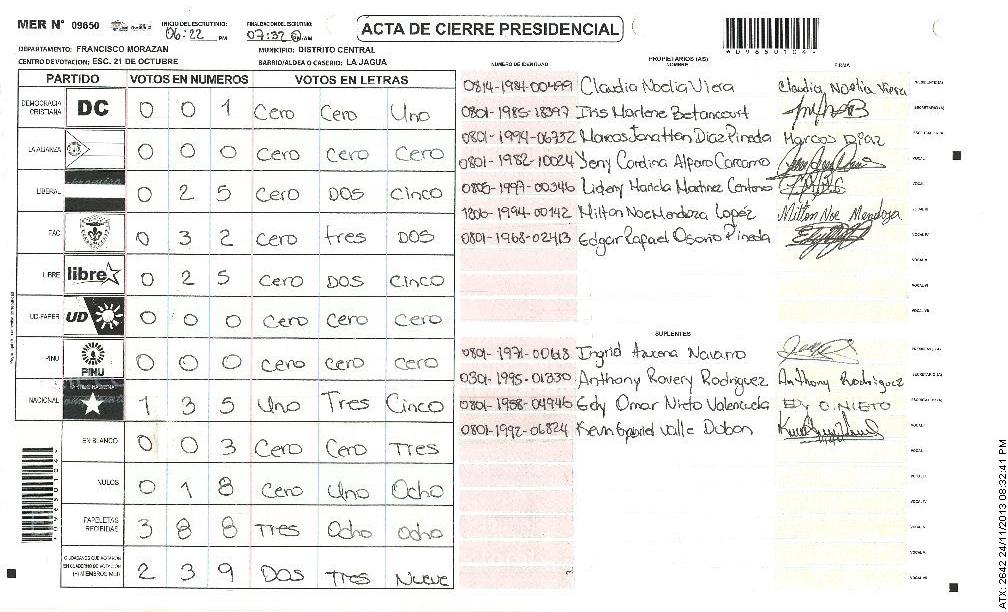 MER N° 09650
INICIO DEL ESCRUTINIO: 06:22 PM
FINALIZACION DEL ESCRUTINIO: 07:32
ACTA DE CIERRE PRESIDENCIAL
DEPARTAMENTO: FRANCISCO MORAZAN
MUNICIPIO: DISTRITO CENTRAL
CENTRO DE VOTACION: ESC. 21 DE OCTUBRE
BARRIO/ALDEA O CASERIO: LA JAGUA
PARTIDO VOTOS EN NUMEROS VOTOS EN LETRAS
DEMOCRACIA CRISTIANA DC 0 0 1 Cero Cero Uno
LA ALIANZA 0 0 0 Cero Cero Cero
LIBERAL 0 2 5 Cero DOS Cinco
FAC 0 3 2 Cero tres DOS
LIBRE libre 0 2 5 Cero DOS Cinco
UD-FAPER UD 0 0 0 Cero Cero Cero
PINU PINU 0 0 0 Cero Cero Cero
NACIONAL 1 3 5 Uno Tres Cinco
EN BLANCO 0 0 3 Cero Cero Tres
NULOS 0 1 8 Cero Uno Ocho
PAPELETAS RECIBIDAS 3 8 8 Tres Ocho Ocho
CIUDADANOS QUE VOTARON EN CUADERNO DE VOTACION 2 3 9 Dos Tres Nueve
PROPIETARIOS (AS)
NUMERO DE IDENTIDAD NOMBRE FIRMA
0814-1984-00499 Claudia Noelia Viera Claudia Noelia Viera PRESIDENTE (A)
0801-1985-18397 Iris Marlene Betancourt SECRETARIO (A)
0801-1994-06732 Marcos Jonatthan Diaz Pineda Marcos Diaz
0801-1982-10024 Yeny Carolina Alfaro Carcamo
0805-1997-00346 Lideny Mariela Martinez Centeno
1806-1994-00142 Milton Noe Mendoza Lopéz Milton Noe Mendoza
0801-1968-02413 Edgar Rafael Osorio Pineda
SUPLENTES
0801-1971-00668 Ingrid Azucena Navarro PRESIDENTE (A)
0301-1995-01330 Anthony Rovery Rodriguez Anthony Rodriguez SECRETARIO (A)
0801-1958-04946 Edy Omar Nieto Valenzuela EDY O. NIETO
0801-1992-06824 Kevin Gabriel Valle Dubon
ATX: 2642 24/11/2013 08:32:41 PM